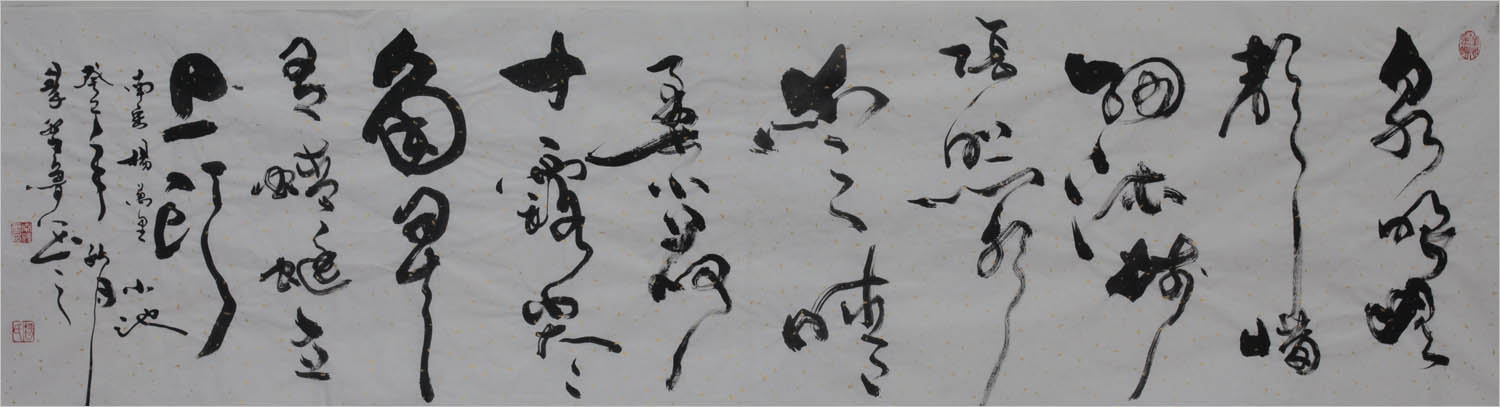 泉眼無
聲惜
細流樹
陰照水
愛晴
柔小荷
才露尖尖
角早
有蜻蜓立
上頭
南宋楊萬里小池
癸巳年秋月